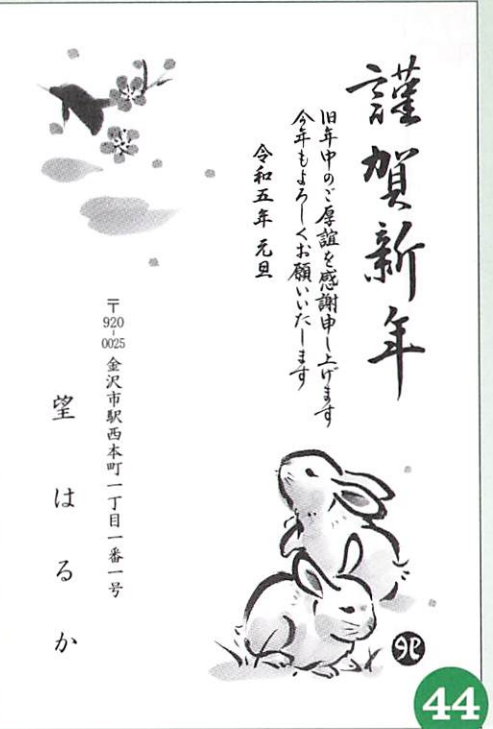 謹賀新年
旧年中のご厚誼を感謝申し上げます
今年もよろしくお願いいたします
令和五年 元旦
〒920-0025 金沢市駅西本町一丁目一番一号
望 はるか
卯
44